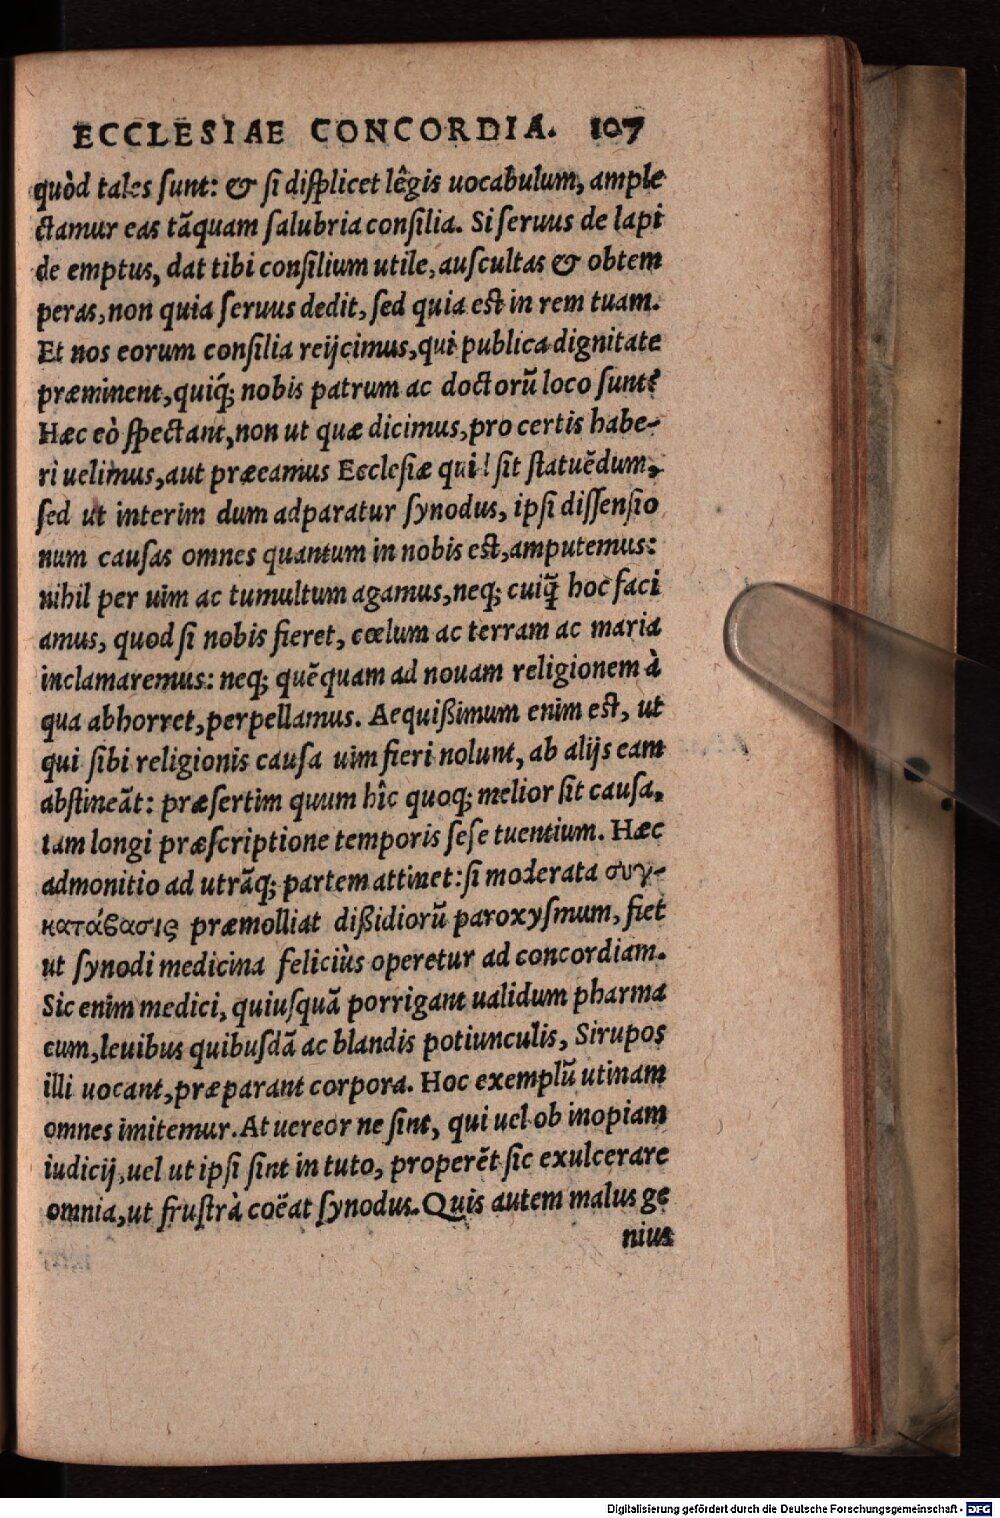 ECCLESIAE CONCORDIA. 107
quòd tales ſunt: & ſi diſplicet lêgis uocabulum, ample
ctamur eas tãquam ſalubria conſilia. Si ſeruus de lapi
de emptus, dat tibi conſilium utile, auſcultas & obtem
peras, non quia ſeruus dedit, ſed quia eſt in rem tuam.
Et nos eorum conſilia reijcimus, qui publica dignitate
præminent, quiq́; nobis patrum ac doctorũ loco ſunt?
Hæc eò ſpectant, non ut quæ dicimus, pro certis habe-
ri uelimus, aut præeamus Eccleſiæ quid ſit ſtatuẽdum,
ſed ut interim dum adparatur ſynodus, ipſi diſſenſio
num cauſas omnes quantum in nobis eſt, amputemus:
nihil per uim ac tumultum agamus, neq; cuiq̃ hoc faci
amus, quod ſi nobis fieret, cœlum ac terram ac maria
inclamaremus: neq; quẽquam ad nouam religionem à
qua abhorret, perpellamus. Aequißimum enim eſt, ut
qui ſibi religionis cauſa uim fieri nolunt, ab alijs eam
abſtineãt: præſertim quum hîc quoq; melior ſit cauſa,
tam longi præſcriptione temporis ſeſe tuentium. Hæc
admonitio ad utrãq; partem attinet: ſi moderata συγ-
κατάϐασις præmolliat dißidiorũ paroxyſmum, fiet
ut ſynodi medicina feliciùs operetur ad concordiam.
Sic enim medici, quiuſquã porrigant ualidum pharma
cum, leuibus quibuſdã ac blandis potiunculis, Sirupos
illi uocant, præparant corpora. Hoc exemplũ utinam
omnes imitemur. At uereor ne ſint, qui uel ob inopiam
iudicij, uel ut ipſi ſint in tuto, properẽt ſic exulcerare
omnia, ut fruſtrà coẽat ſynodus. Quis autem malus ge
nius
Digitalisierung gefördert durch die Deutsche Forschungsgemeinschaft - DFG